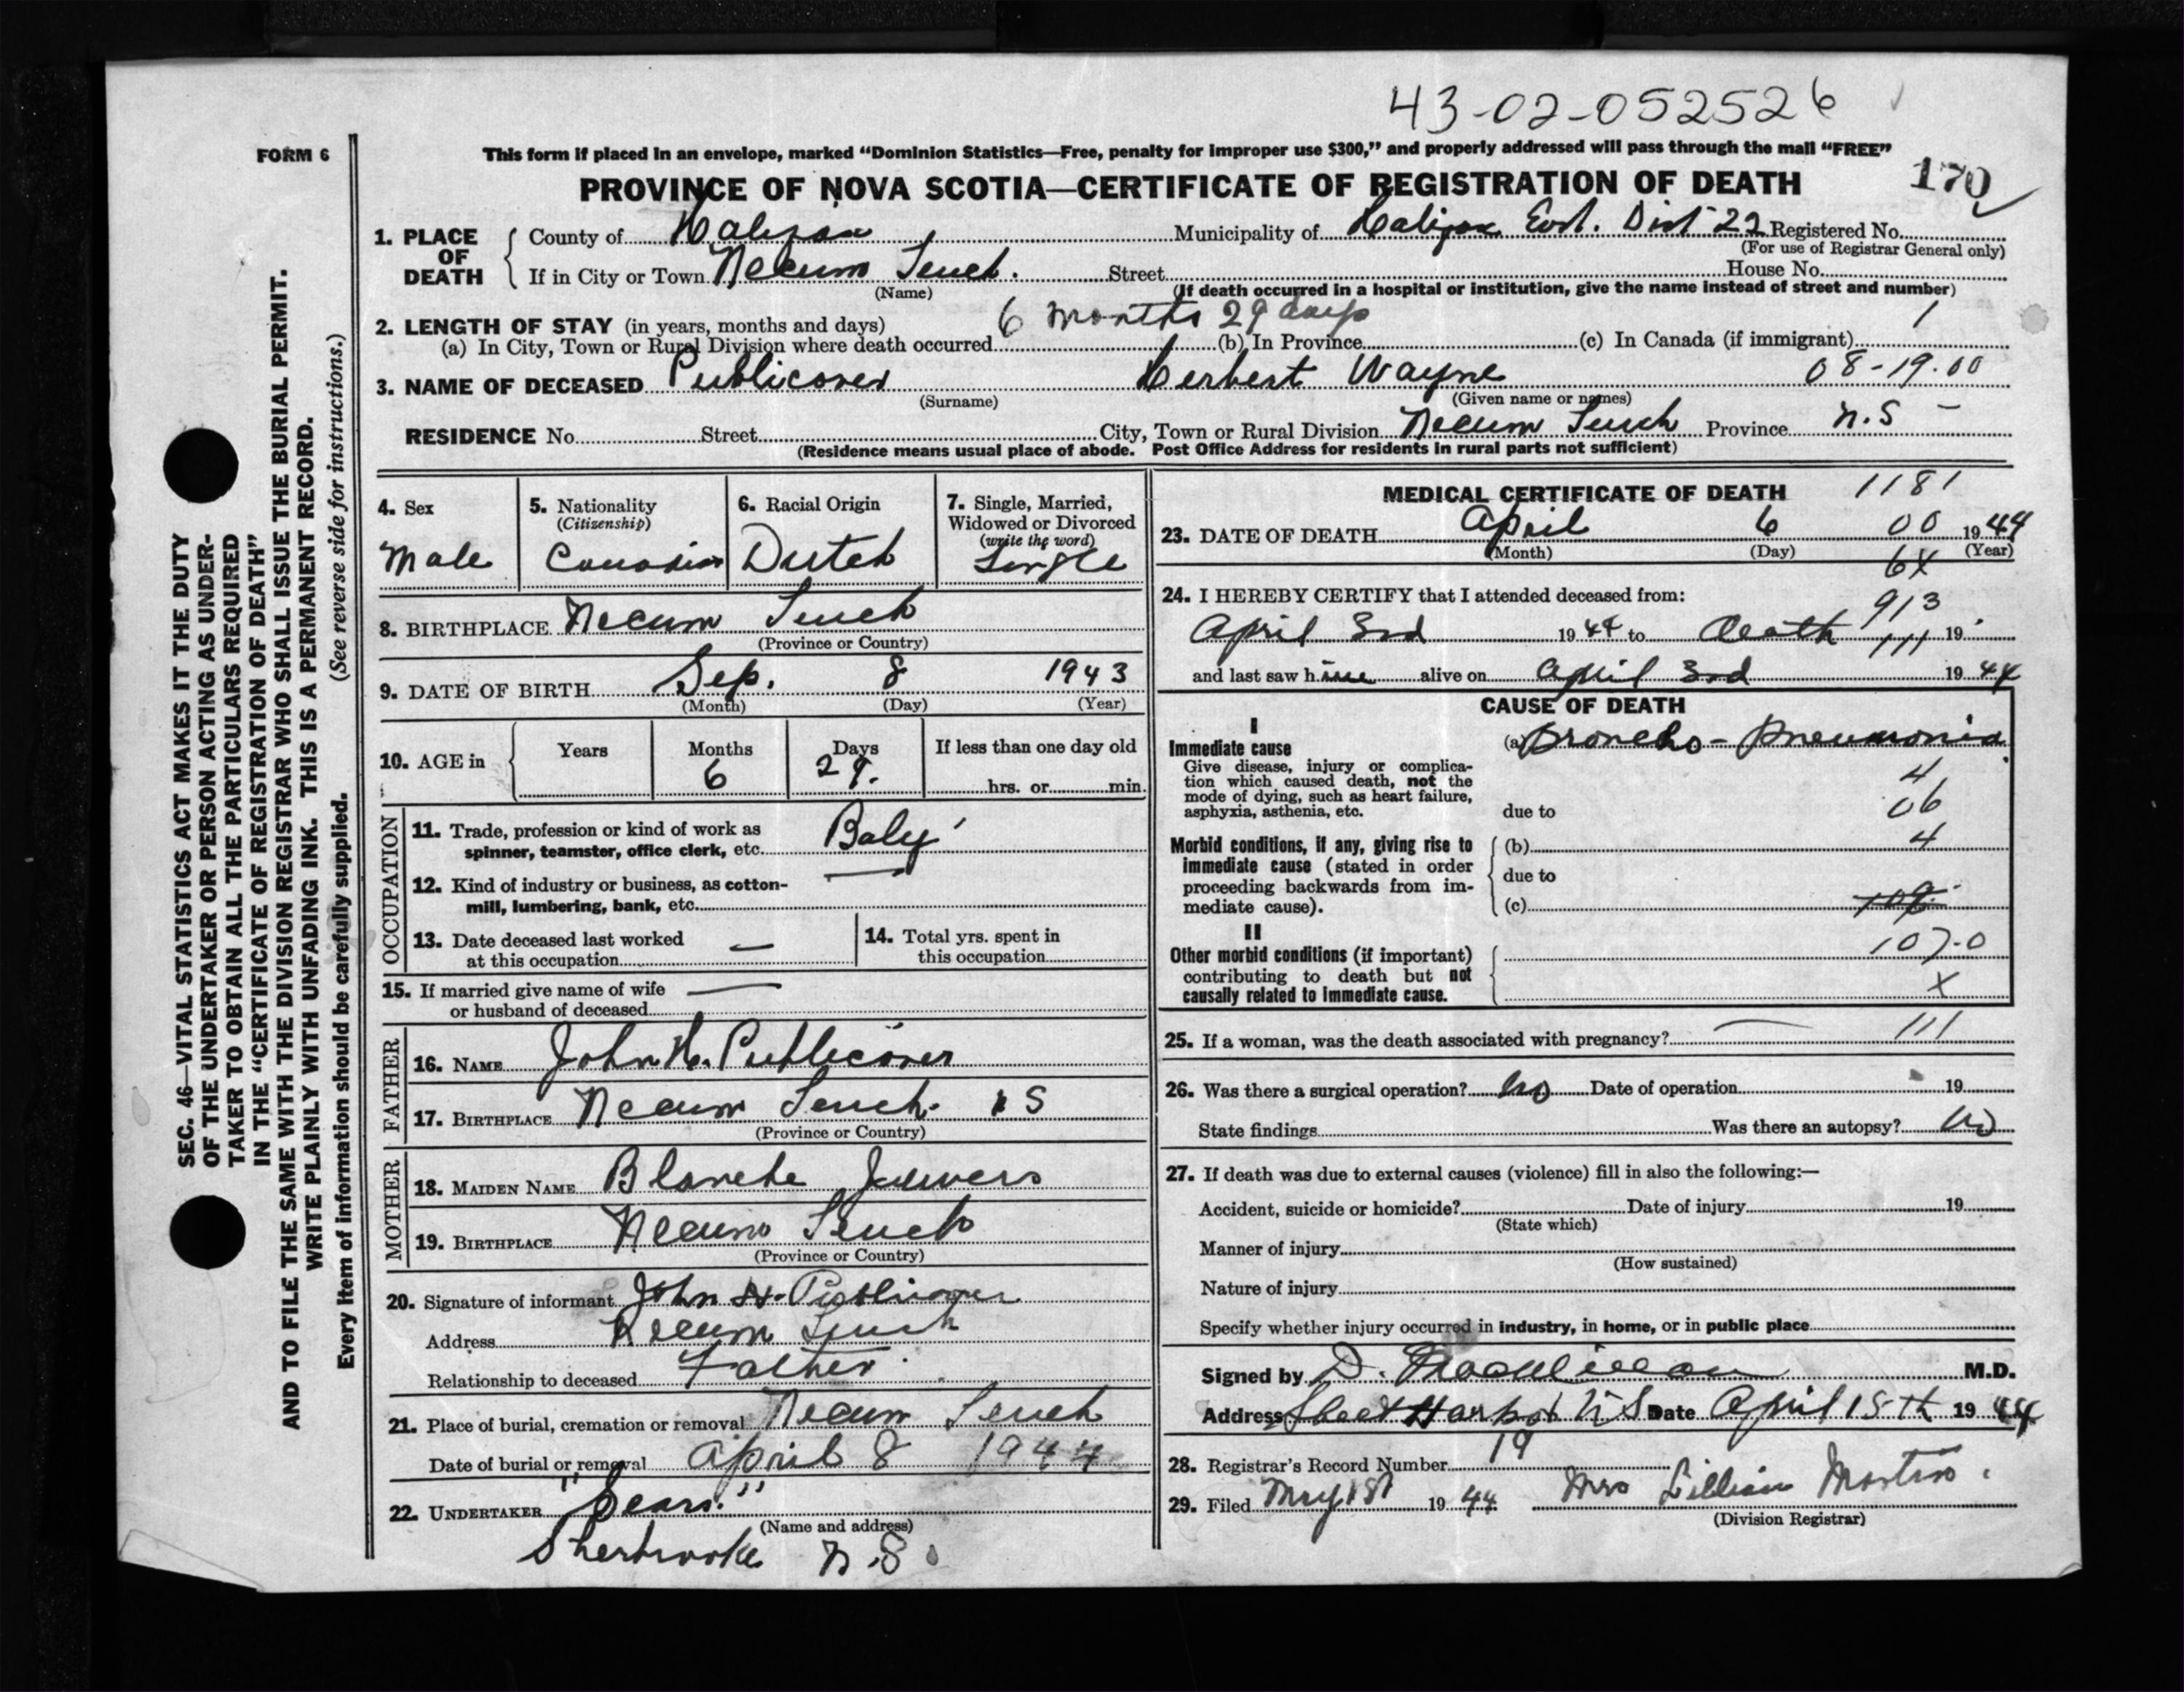 43-02-052526
FORM 6
This form if placed in an envelope, marked “Dominion Statistics—Free, penalty for improper use $300,” and properly addressed will pass through the mail “FREE”
PROVINCE OF NOVA SCOTIA—CERTIFICATE OF REGISTRATION OF DEATH 170
1. PLACE OF DEATH
County of Halifax Municipality of Halifax East. Dist 22 Registered No.
(For use of Registrar General only)
If in City or Town Necum Teuch. Street House No.
(Name) (If death occurred in a hospital or institution, give the name instead of street and number)
2. LENGTH OF STAY (in years, months and days) 6 months 29 days 1
(a) In City, Town or Rural Division where death occurred (b) In Province (c) In Canada (if immigrant)
3. NAME OF DECEASED Publicover Herbert Wayne 08-19.00
(Surname) (Given name or names)
RESIDENCE No. Street City, Town or Rural Division Necum Teuch Province N.S -
(Residence means usual place of abode. Post Office Address for residents in rural parts not sufficient)
4. Sex
Male
5. Nationality
(Citizenship)
Canadian
6. Racial Origin
Dutch
7. Single, Married,
Widowed or Divorced
(write the word)
Single
8. BIRTHPLACE Necum Teuch
(Province or Country)
9. DATE OF BIRTH Sep. 8 1943
(Month) (Day) (Year)
10. AGE in Years Months Days If less than one day old
6 29. hrs. or min.
OCCUPATION
11. Trade, profession or kind of work as
spinner, teamster, office clerk, etc. Baby
12. Kind of industry or business, as cotton-
mill, lumbering, bank, etc.
13. Date deceased last worked
at this occupation —
14. Total yrs. spent in
this occupation
15. If married give name of wife —
or husband of deceased
FATHER
16. NAME John H. Publicover
17. BIRTHPLACE Necum Teuch. N S
(Province or Country)
MOTHER
18. MAIDEN NAME Blanche
19. BIRTHPLACE Necum Teuch
(Province or Country)
20. Signature of informant John H. Publicover
Address Necum Teuch
Relationship to deceased Father.
21. Place of burial, cremation or removal Necum Teuch
Date of burial or removal April 8 1944
22. UNDERTAKER "Sears."
(Name and address)
Sherbrooke N.S.
MEDICAL CERTIFICATE OF DEATH 1181
23. DATE OF DEATH April 6 00 1944
(Month) (Day) (Year)
6X
24. I HEREBY CERTIFY that I attended deceased from:
913
April 3rd 1944 to death 19
111
and last saw him alive on April 3rd 1944
CAUSE OF DEATH
I
Immediate cause
Give disease, injury or complica-
tion which caused death, not the
mode of dying, such as heart failure,
asphyxia, asthenia, etc.
(a) Broncho-Pneumonia
4
due to 06
Morbid conditions, if any, giving rise to
immediate cause (stated in order
proceeding backwards from im-
mediate cause).
(b) 4
due to
(c)
II
Other morbid conditions (if important)
contributing to death but not
causally related to immediate cause.
107.0
X
25. If a woman, was the death associated with pregnancy? — 111
26. Was there a surgical operation? No Date of operation 19
State findings Was there an autopsy? No
27. If death was due to external causes (violence) fill in also the following:—
Accident, suicide or homicide? Date of injury 19
(State which)
Manner of injury
(How sustained)
Nature of injury
Specify whether injury occurred in industry, in home, or in public place
Signed by D. MacMillan M.D.
Address Sheet Harbor N S Date April 15th 1944
28. Registrar's Record Number 19
29. Filed May 1st 1944 Mrs Lillian Martin.
(Division Registrar)
SEC. 46—VITAL STATISTICS ACT MAKES IT THE DUTY
OF THE UNDERTAKER OR PERSON ACTING AS UNDER-
TAKER TO OBTAIN ALL THE PARTICULARS REQUIRED
IN THE “CERTIFICATE OF REGISTRATION OF DEATH”
AND TO FILE THE SAME WITH THE DIVISION REGISTRAR WHO SHALL ISSUE THE BURIAL PERMIT.
WRITE PLAINLY WITH UNFADING INK. THIS IS A PERMANENT RECORD.
Every item of information should be carefully supplied. (See reverse side for instructions.)